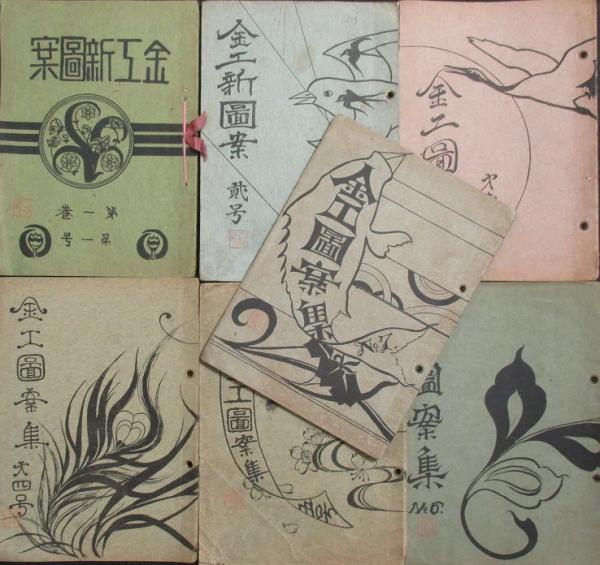 金工新圖案
第一卷
第一号
金工新圖案
貳号
金工圖
金工圖案集
金工圖案集
㐧四号
工圖案集
圖案集
No.6.